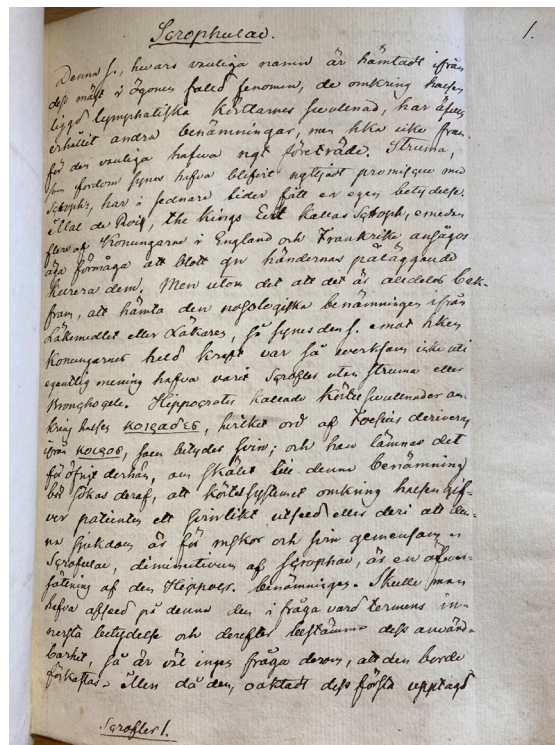 Scrophulae.
1.
Denna s., hvars vanliga namn är hämtadt ifrån
dess mäst i ögonen fallde fenomen, de omkring halsen
liggde lymphatiska körtlarnes svulenad, har äfven
erhållit andra benämningar, men hka icke fram-
för den vanliga hafva ngt företräde. Struma,
som fordom synes hafva blifvit nyttjadt promisque med
Scroph:, har i sednare tider fått en egen betydelse.
Mal de Rois, the kings Evil kallas Scroph, emedan
flere af Konungarne i England och Frankrike ansågos
äga förmåga att blott gn händernas påläggande
kurera dem. Men utom det att det är alldeles bak-
fram, att hämta den nosologiska benämningen ifrån
Läkemedlet eller Läkares, så synes den s. emot hken
Konungarnes held kraft var så verksam icke uti
egentlig mening hafva varit Scrofler utan struma eller
Bronchocele. Hippocrates kallade Körtelsvullnader om-
kring halsen κοιραδες, hvilket ord af Foesius deriveras
ifrån κοιρος, som betyder svin; och han lämnar det
för öfrigt derhän, om skälet till denna benämning
bör sökas deraf, att körtelsystemet omkring halsen gif-
ver patienten ett svinlikt utseed eller deri att den-
na sjukdom är för mskor och svin gemensam.
Scrofulae, diminutivum af scrophae, är en öfver-
sättning af den Hippocr. benämningen. Skulle man
hafva afseed på denna den i fråga vard termens in-
nersta betydelse och derefter bestämma dess använd-
barhet, så är väl ingen fråga derom, att den borde
förkastas. Men då den, oaktadt dess första upptagd
Scrofler 1.